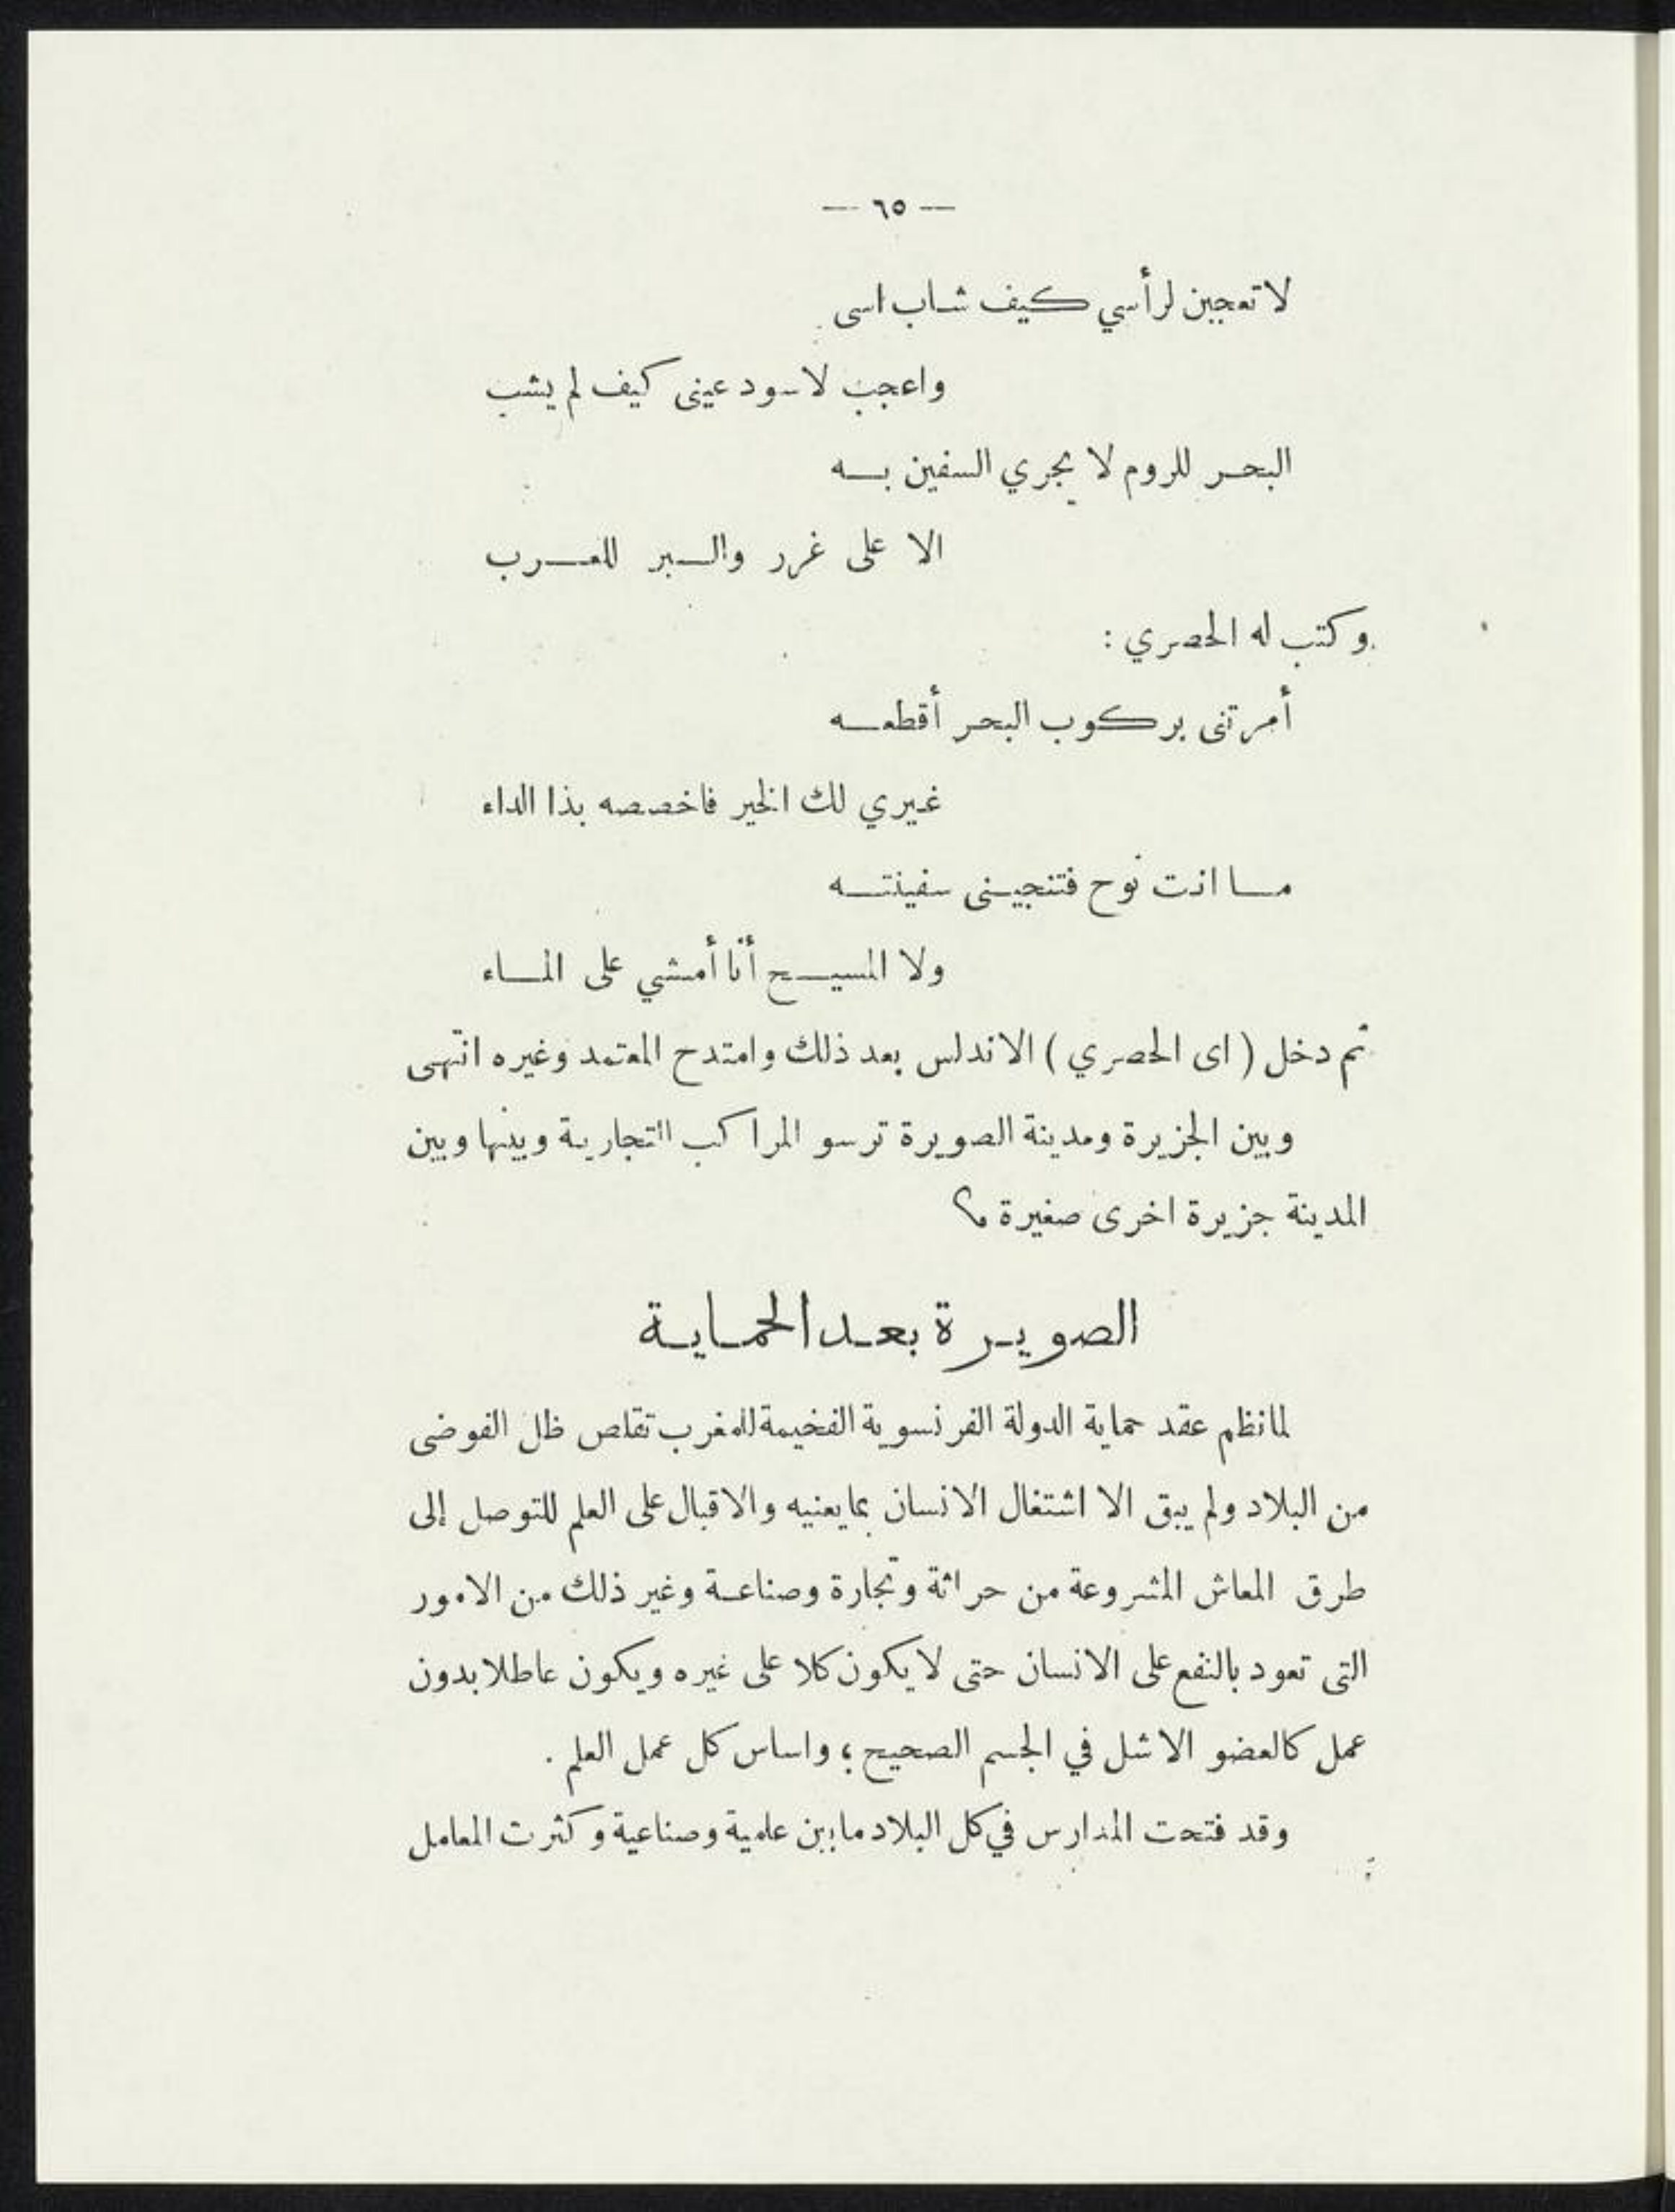 — ٦٥ —
لا تعجبن لرأسي كيف شاب اسى
واعجب لاسود عينى كيف لم يشب
البحر للروم لا يجري السفين به
الا على غرر والبر للعرب
وكتب له الحصري :
أمرتنى بركوب البحر أقطعه
غيري لك الخير فاخصصه بذا الداء
ما انت نوح فتنجينى سفينته
ولا المسيح أنا أمشي على الماء
ثم دخل ( اى الحصري ) الاندلس بعد ذلك وامتدح المعتمد وغيره انتهى
وبين الجزيرة ومدينة الصويرة ترسو المراكب التجارية وبينها وبين
المدينة جزيرة اخرى صغيرة
الصويرة بعد الحماية
لما نظم عقد حماية الدولة الفرنسوية الفخيمة للمغرب تقلص ظل الفوضى
من البلاد ولم يبق الا اشتغال الانسان بما يعنيه والاقبال على العلم للتوصل إلى
طرق المعاش المشروعة من حراثة وتجارة وصناعة وغير ذلك من الامور
التى تعود بالنفع على الانسان حتى لا يكون كلا على غيره ويكون عاطلا بدون
عمل كالعضو الاشل في الجسم الصحيح ؛ واساس كل عمل العلم .
وقد فتحت المدارس في كل البلاد ما بين علمية وصناعية وكثرت المعامل